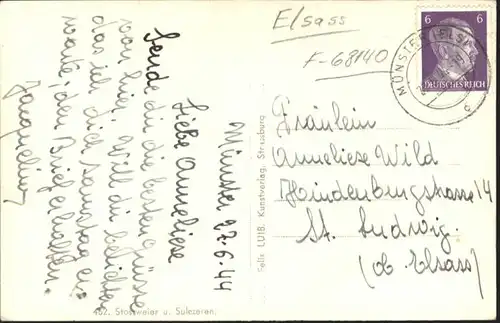 Münster 27.6.44
Liebe Anneliese
Sende dir die besten Grüsse
von hier. Will dir
das ich dich Samstag er-
warte, den Brief erhalten.
Jacqueline
Elsass
F-68140
6 6
DEUTSCHES REICH
MÜNSTER (ELS)
c
Fräulein
Anneliese Wild
Hindenburgstrasse 14
St. Ludwig.
(Ob. Elsass)
Felix LUIB, Kunstverlag, Strassburg
452. Stossweier u. Sulzeren.